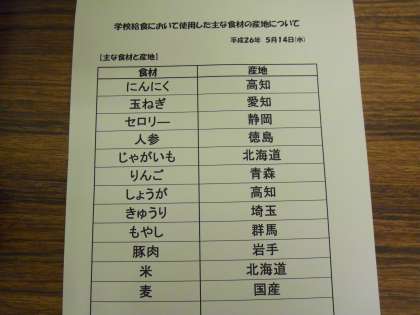 学校給食において使用した主な食材の産地について
平成26年 5月14日(水)
[主な食材と産地]
食材 産地
にんにく 高知
玉ねぎ 愛知
セロリー 静岡
人参 徳島
じゃがいも 北海道
りんご 青森
しょうが 高知
きゅうり 埼玉
もやし 群馬
豚肉 岩手
米 北海道
麦 国産